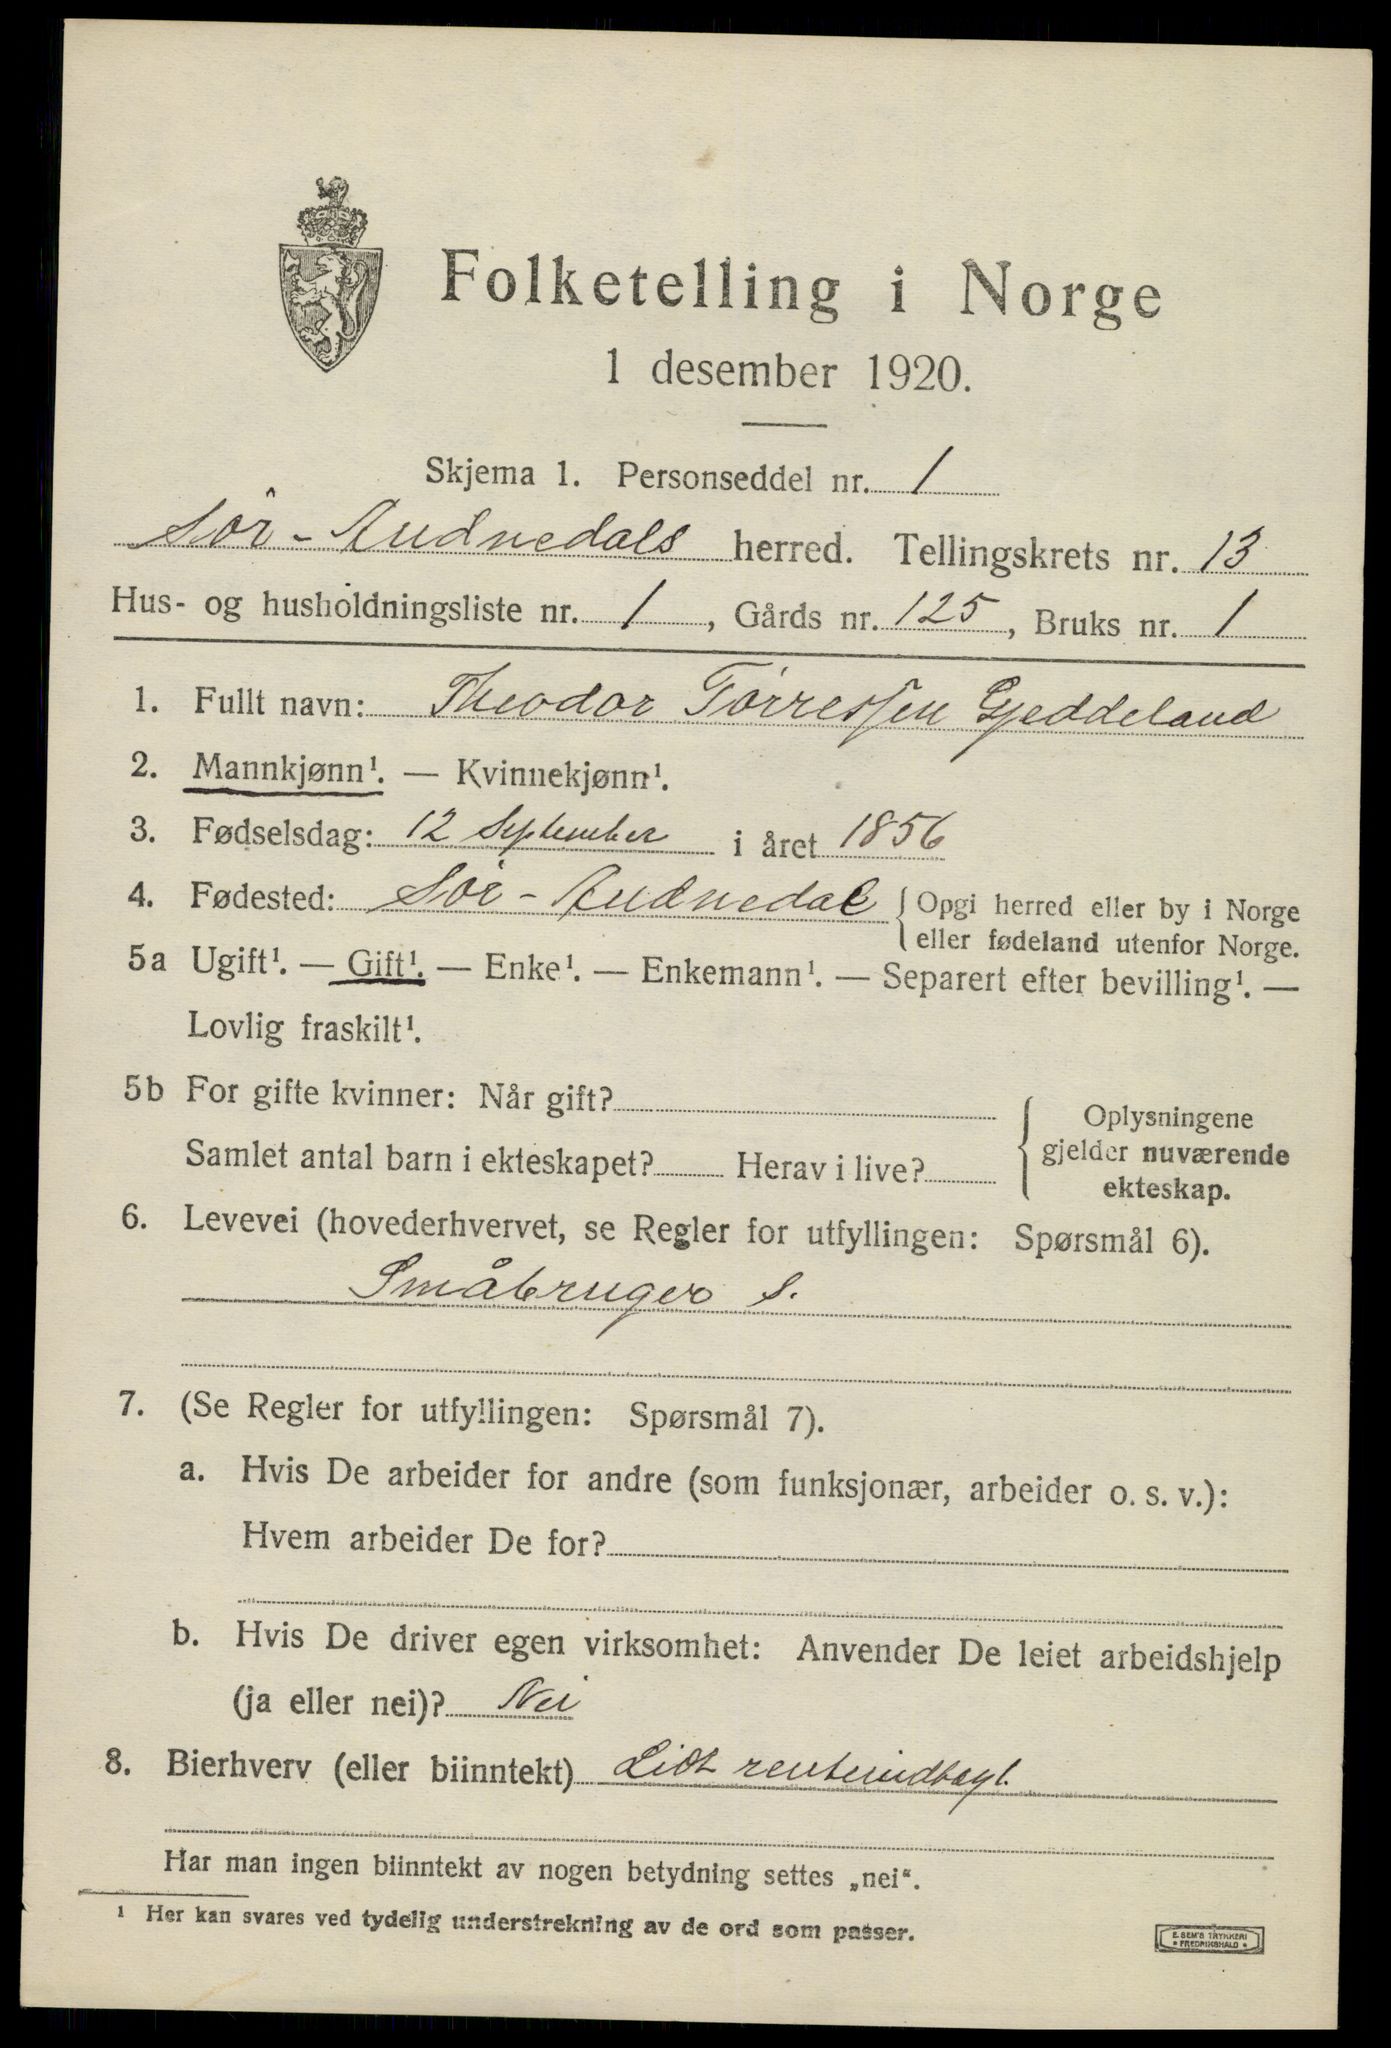 Folketelling i Norge
1 desember 1920.
Skjema 1. Personseddel nr. 1
Sør-Audnedals herred. Tellingskrets nr. 13
Hus- og husholdningsliste nr. 1, Gårds nr. 125, Bruks nr. 1
1. Fullt navn: Theodor Tørressen Gjeddeland
2. Mannkjønn¹. — Kvinnekjønn¹.
3. Fødselsdag: 12 September i året 1856
4. Fødested: Sør-Audnedal { Opgi herred eller by i Norge
eller fødeland utenfor Norge.
5a Ugift¹. — Gift¹. — Enke¹. — Enkemann¹. — Separert efter bevilling¹. —
Lovlig fraskilt¹.
5b For gifte kvinner: Når gift?
Samlet antal barn i ekteskapet? Herav i live?
{ Oplysningene
gjelder nuværende
ekteskap.
6. Levevei (hovederhvervet, se Regler for utfyllingen: Spørsmål 6).
Småbruger S.
7. (Se Regler for utfyllingen: Spørsmål 7).
a. Hvis De arbeider for andre (som funksjonær, arbeider o. s. v.):
Hvem arbeider De for?
b. Hvis De driver egen virksomhet: Anvender De leiet arbeidshjelp
(ja eller nei)? Nei
8. Bierhverv (eller biinntekt) Lidt renteindtægt.
Har man ingen biinntekt av nogen betydning settes „nei“.
¹ Her kan svares ved tydelig understrekning av de ord som passer.
E. SEM'S TRYKKERI
• FREDRIKSHALD •